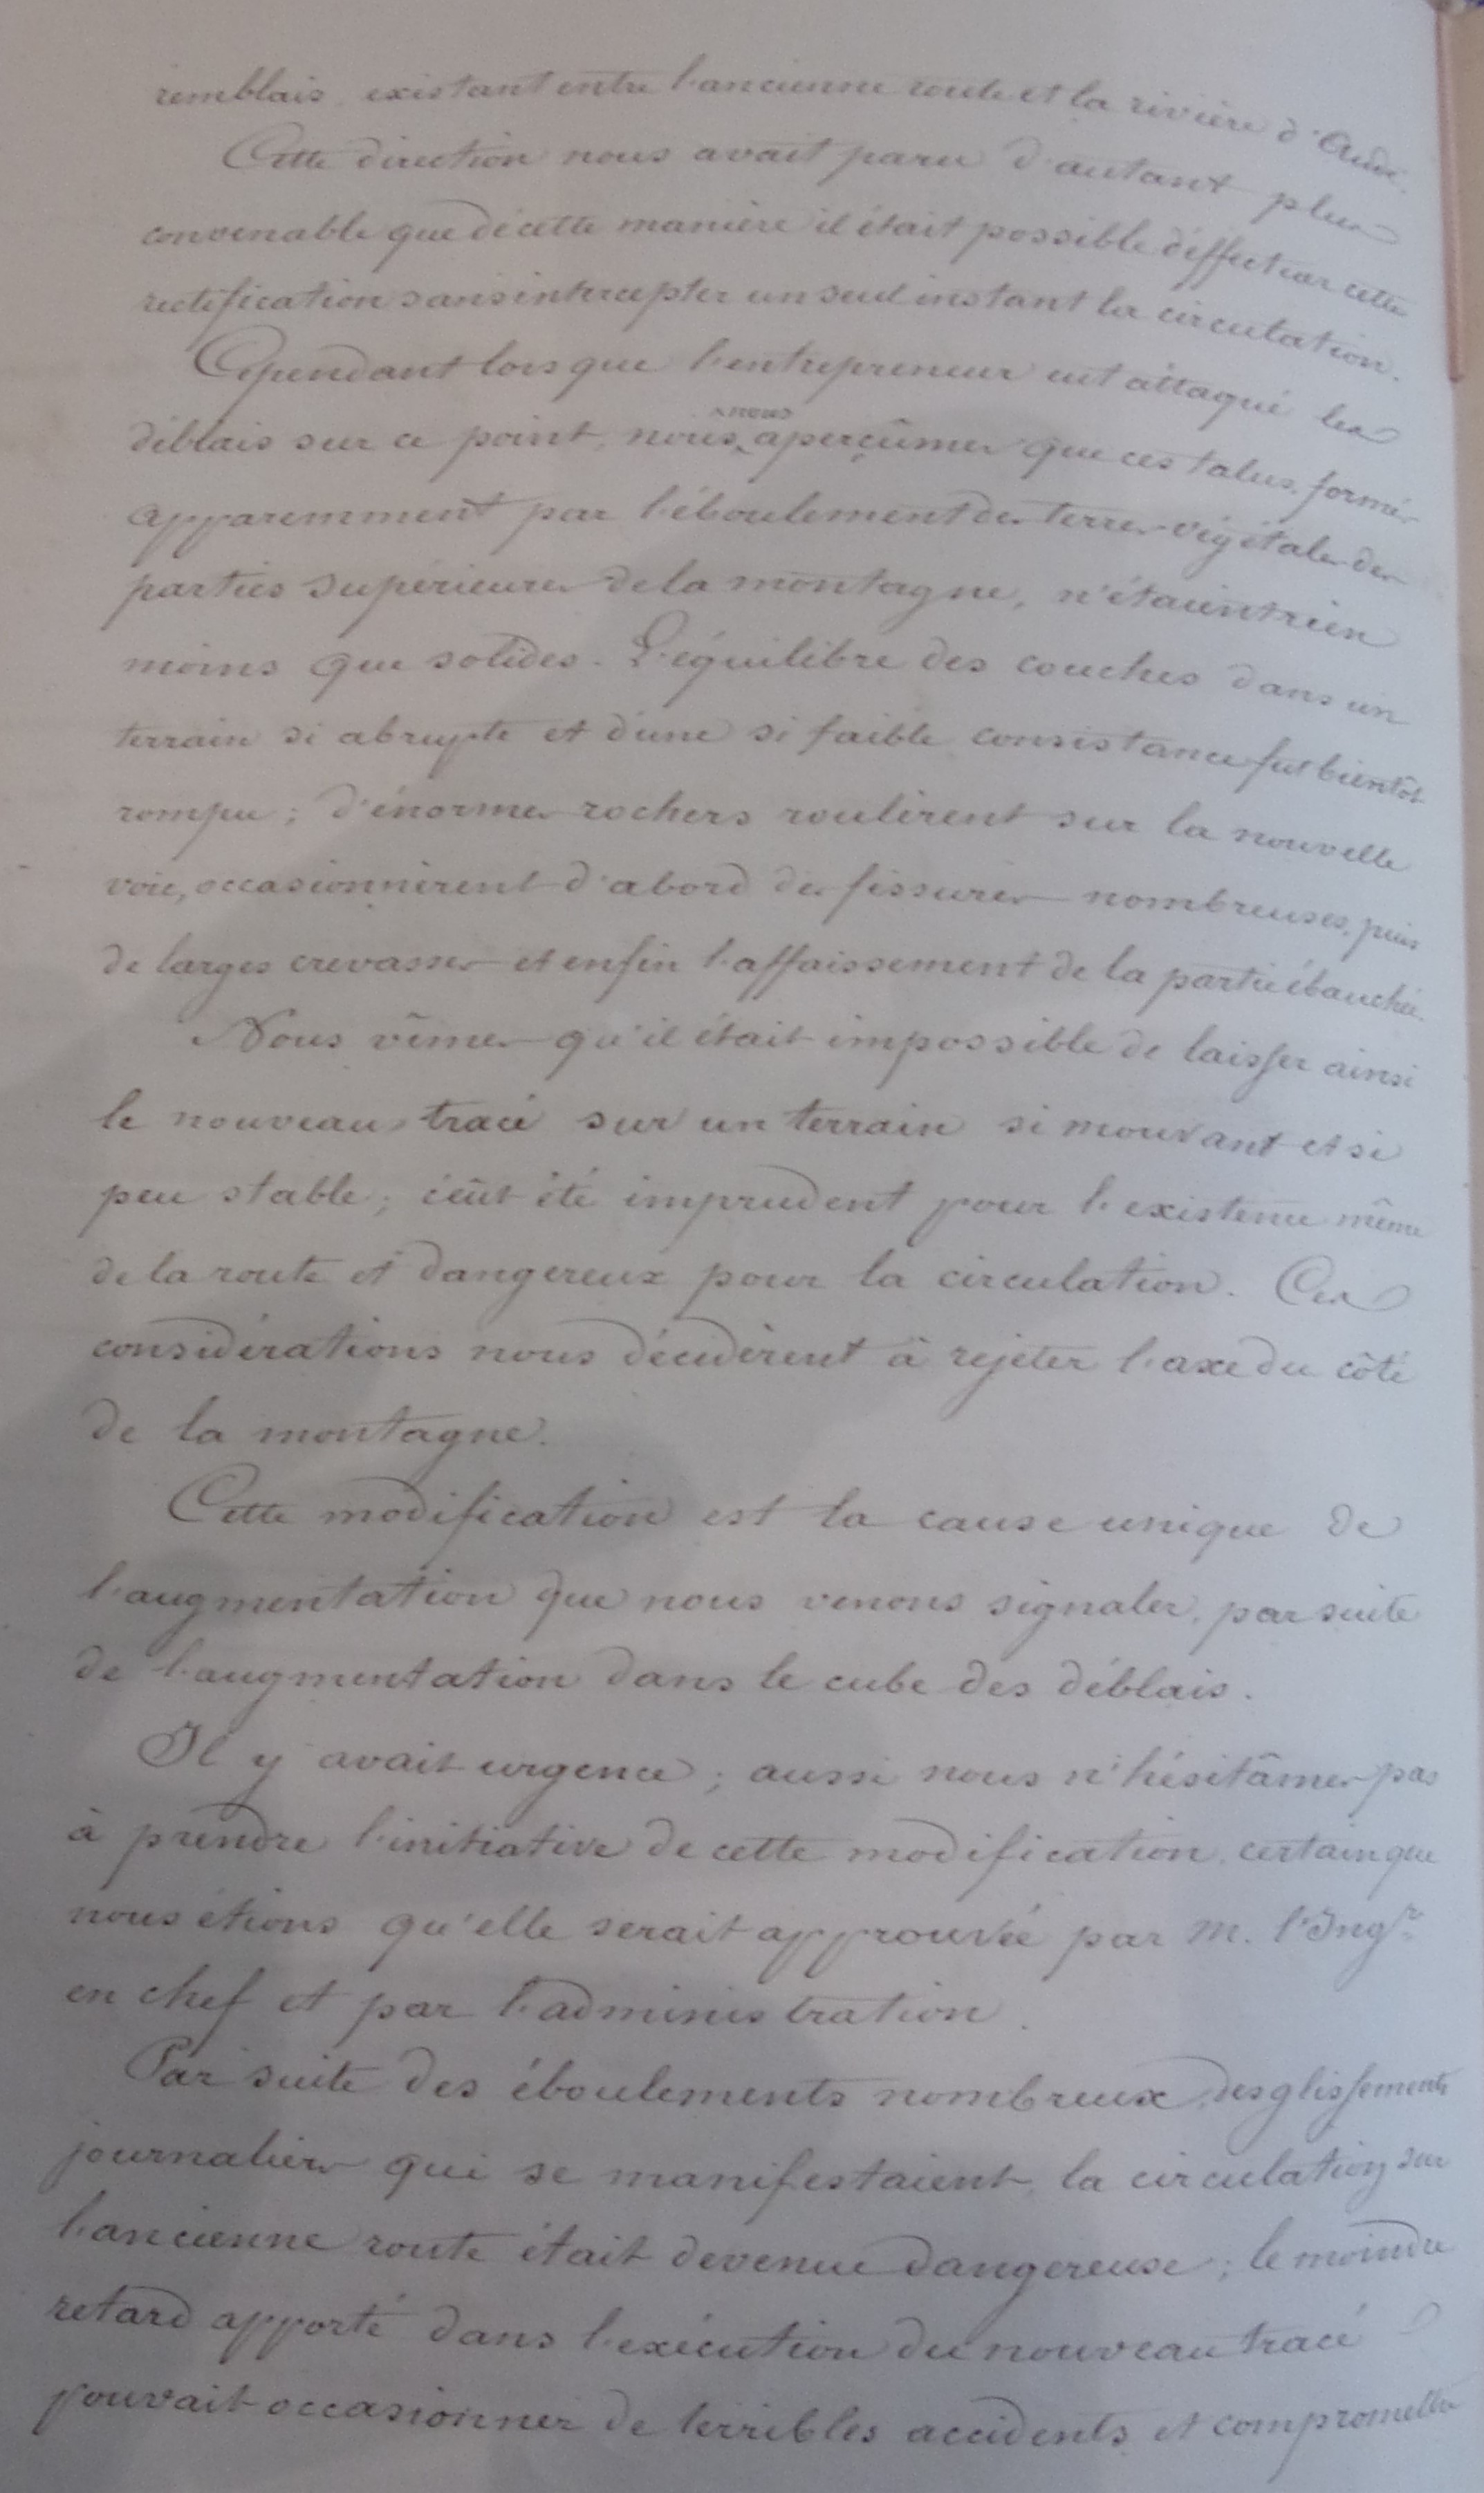 remblais existant entre l'ancienne route et la rivière d'Aude.
Cette direction nous avait paru d'autant plus
convenable que de cette manière il était possible d'effectuer cette
rectification sans intercepter un seul instant la circulation.
Cependant lorsque l'entrepreneur eut attaqué les
déblais sur ce point, nous nous aperçûmes que ces talus, formés
apparemment par l'éboulement des terres végétales des
parties supérieures de la montagne, n'étaient rien
moins que solides. L'équilibre des couches dans un
terrain si abrupte et d'une si faible consistance fut bientôt
rompu ; d'énormes rochers roulèrent sur la nouvelle
voie, occasionnèrent d'abord des fissures nombreuses, puis
de larges crevasses et enfin l'affaissement de la partie ébauchée.
Nous vîmes qu'il était impossible de laisser ainsi
le nouveau tracé sur un terrain si mouvant et si
peu stable ; c'eût été imprudent pour l'existence même
de la route et dangereux pour la circulation. Ces
considérations nous décidèrent à rejeter l'axe du côté
de la montagne.
Cette modification est la cause unique de
l'augmentation que nous venons signaler, par suite
de l'augmentation dans le cube des déblais.
Il y avait urgence ; aussi nous n'hésitâmes pas
à prendre l'initiative de cette modification, certain que
nous étions qu'elle serait approuvée par M. l'Ingr
en chef et par l'administration.
Par suite des éboulements nombreux, des glissements
journaliers qui se manifestaient, la circulation sur
l'ancienne route était devenue dangereuse ; le moindre
retard apporté dans l'exécution du nouveau tracé
pouvait occasionner de terribles accidents et compromettre